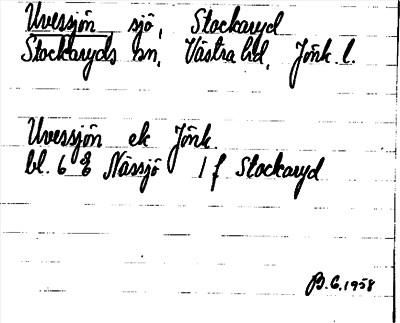 Uvessjön sjö, Stockaryd
Stockaryds sn, Västra hd, Jönk. l.
Uvessjön ek Jönk.
bl. 6 Nässjö 1 f Stockaryd
B.G. 1958